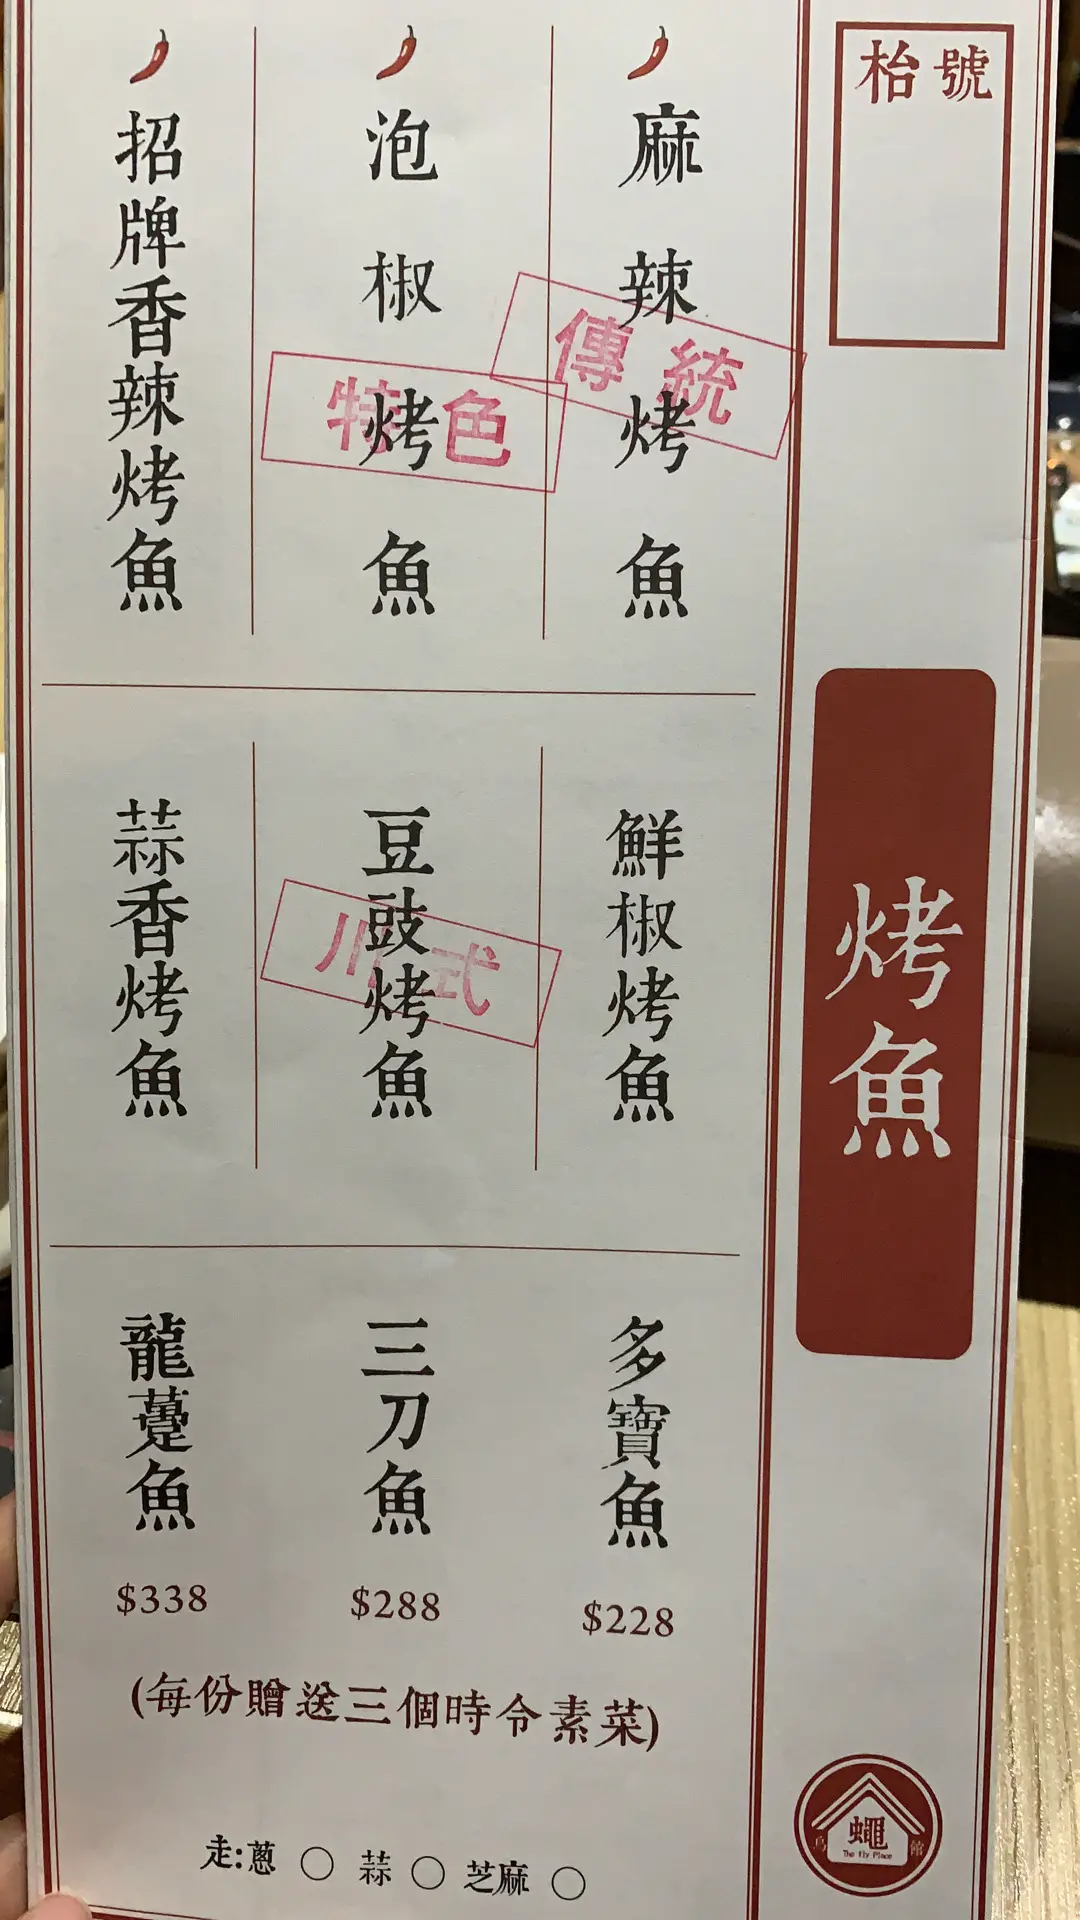 枱號
烤魚
麻辣烤魚
傳統
泡椒烤魚
特色
招牌香辣烤魚
鮮椒烤魚
豆豉烤魚
川式
蒜香烤魚
多寶魚
$228
三刀魚
$288
龍躉魚
$338
(每份贈送三個時令素菜)
走:蔥 ○ 蒜 ○ 芝麻 ○
烏蠅館
The Fly Place